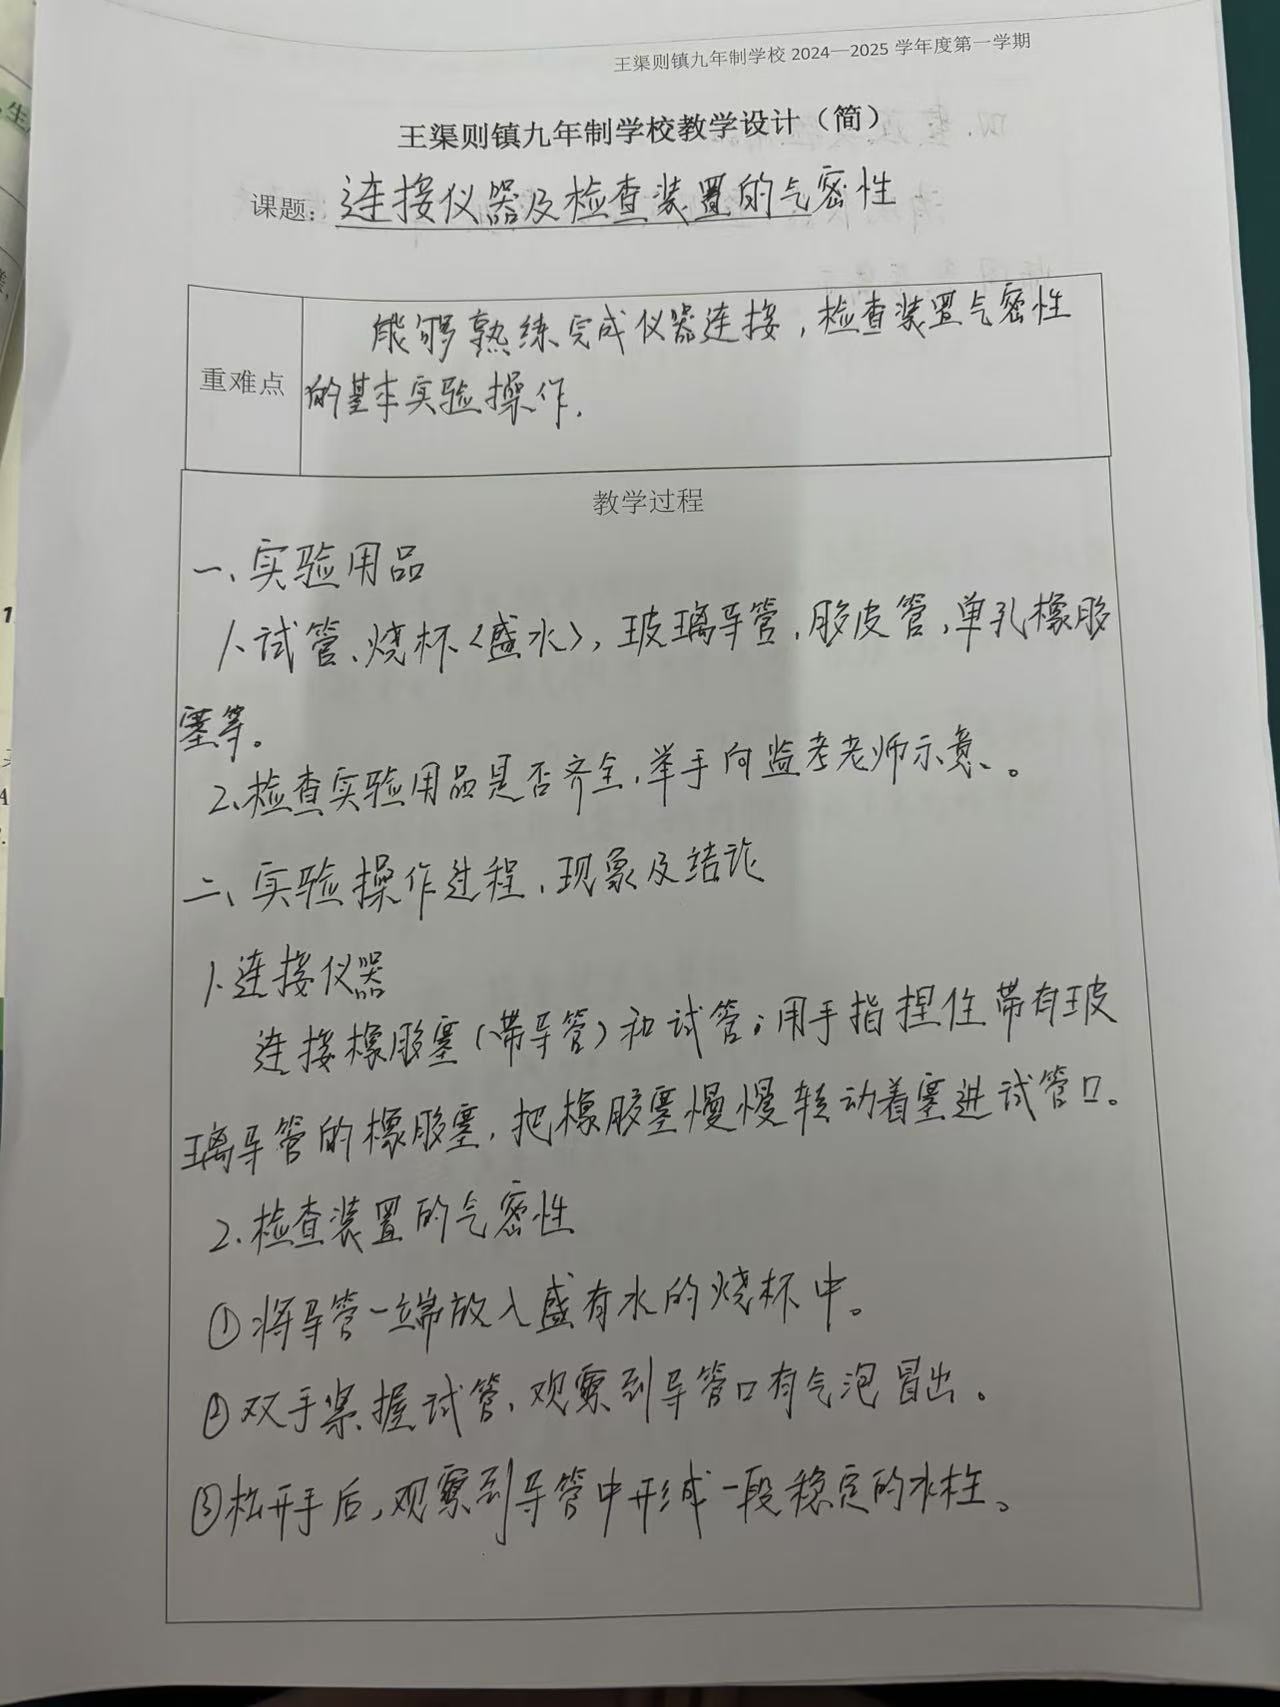 王渠则镇九年制学校 2024—2025 学年度第一学期
王渠则镇九年制学校教学设计（简）
课题：连接仪器及检查装置的气密性
能够熟练完成仪器连接，检查装置气密性
重难点
的基本实验操作.
教学过程
一、实验用品
1.试管、烧杯<盛水>，玻璃导管，胶皮管，单孔橡胶
塞等。
2.检查实验用品是否齐全，举手向监考老师示意、。
二、实验操作过程、现象及结论
1.连接仪器
连接橡胶塞（带导管）和试管；用手指捏住带有玻
璃导管的橡胶塞，把橡胶塞慢慢转动着塞进试管口。
2.检查装置的气密性
①将导管一端放入盛有水的烧杯中。
②双手紧握试管，观察到导管口有气泡冒出。
③松开手后，观察到导管中形成一段稳定的水柱。